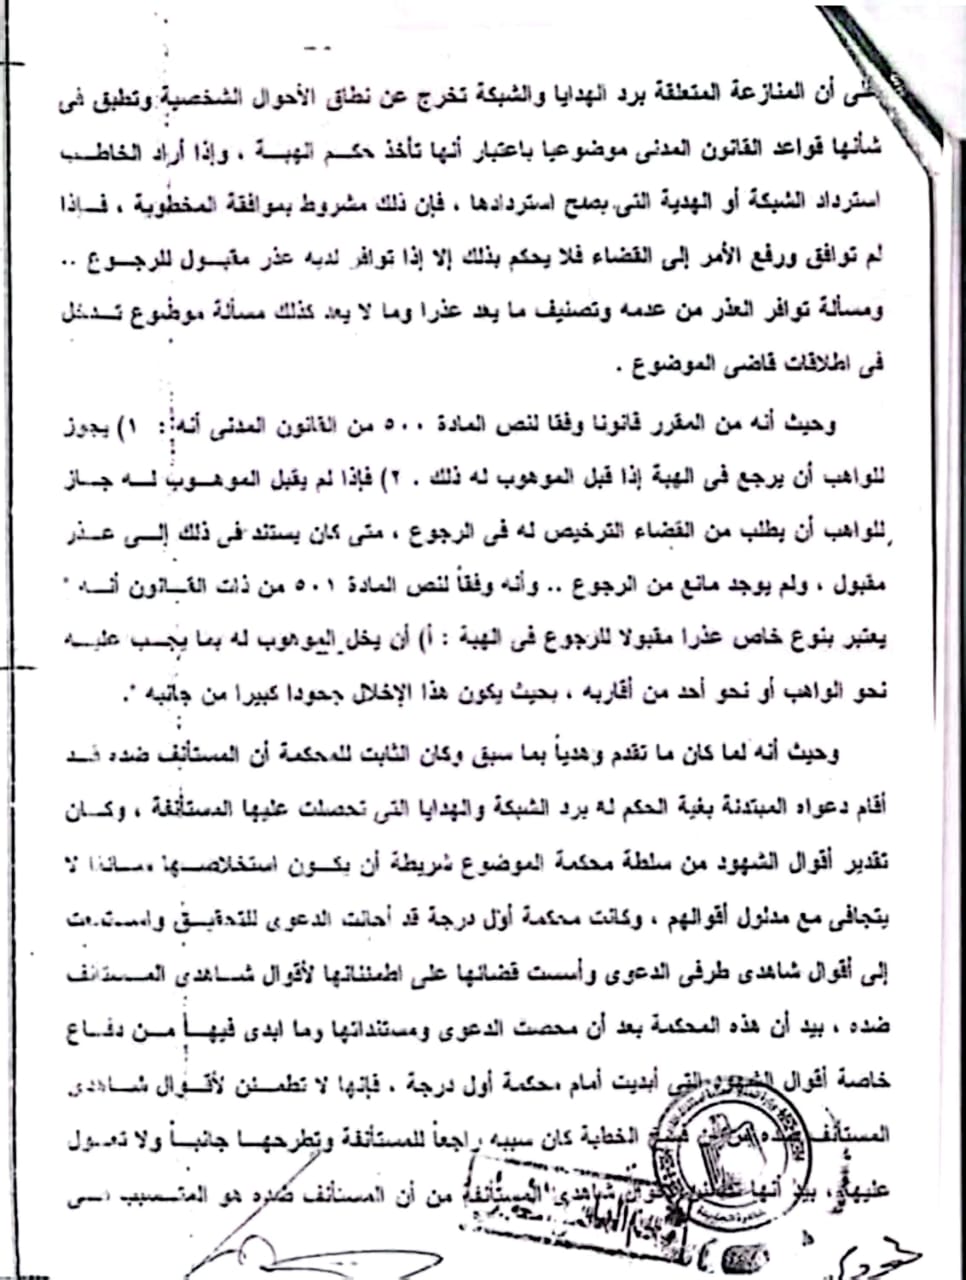 على أن المنازعة المتعلقة برد الهدايا والشبكة تخرج عن نطاق الأحوال الشخصية وتطبق فى
شأنها قواعد القانون المدنى موضوعيا باعتبار أنها تأخذ حكم الهبة ، وإذا أراد الخاطب
استرداد الشبكة أو الهدية التى يصلح استردادها ، فإن ذلك مشروط بموافقة المخطوبة ، فإذا
لم توافق ورفع الأمر إلى القضاء فلا يحكم بذلك إلا إذا توافر لديه عذر مقبول للرجوع ..
ومسألة توافر العذر من عدمه وتصنيف ما يعد عذرا وما لا يعد كذلك مسألة موضوع تدخل
فى اطلاقات قاضى الموضوع .
وحيث أنه من المقرر قانونا وفقا لنص المادة ٥٠٠ من القانون المدنى أنه : ١) يجوز
للواهب أن يرجع فى الهبة إذا قبل الموهوب له ذلك . ٢) فإذا لم يقبل الموهوب له جاز
للواهب أن يطلب من القضاء الترخيص له فى الرجوع ، متى كان يستند فى ذلك إلى عذر
مقبول ، ولم يوجد مانع من الرجوع .. وأنه وفقاً لنص المادة ٥٠١ من ذات القانون أنه "
يعتبر بنوع خاص عذرا مقبولا للرجوع فى الهبة : أ) أن يخل الموهوب له بما يجب عليه
نحو الواهب أو نحو أحد من أقاربه ، بحيث يكون هذا الإخلال جحودا كبيرا من جانبه ".
وحيث أنه لما كان ما تقدم وهدياً بما سبق وكان الثابت للمحكمة أن المستأنف ضده قد
أقام دعواه المبتدئة بغية الحكم له برد الشبكة والهدايا التى تحصلت عليها المستأنفة ، وكان
تقدير أقوال الشهود من سلطة محكمة الموضوع شريطة أن يكون استخلاصها سائغا لا
يتجافى مع مدلول أقوالهم ، وكانت محكمة أول درجة قد أحالت الدعوى للتحقيق واستمعت
إلى أقوال شاهدى طرفى الدعوى وأسست قضائها على اطمئنانها لأقوال شاهدى المستأنف
ضده ، بيد أن هذه المحكمة بعد أن محصت الدعوى ومستنداتها وما ابدى فيها من دفاع
خاصة أقوال الشهود التى أبديت أمام محكمة أول درجة ، فإنها لا تطمئن لأقوال شاهدى
المستأنف ضده من أن فسخ الخطبة كان سببه راجعاً للمستأنفة وتطرحها جانباً ولا تعول
عليها ، بيد أنها تطمئن لأقوال شاهدى المستأنفة من أن المستأنف ضده هو المتسبب فى